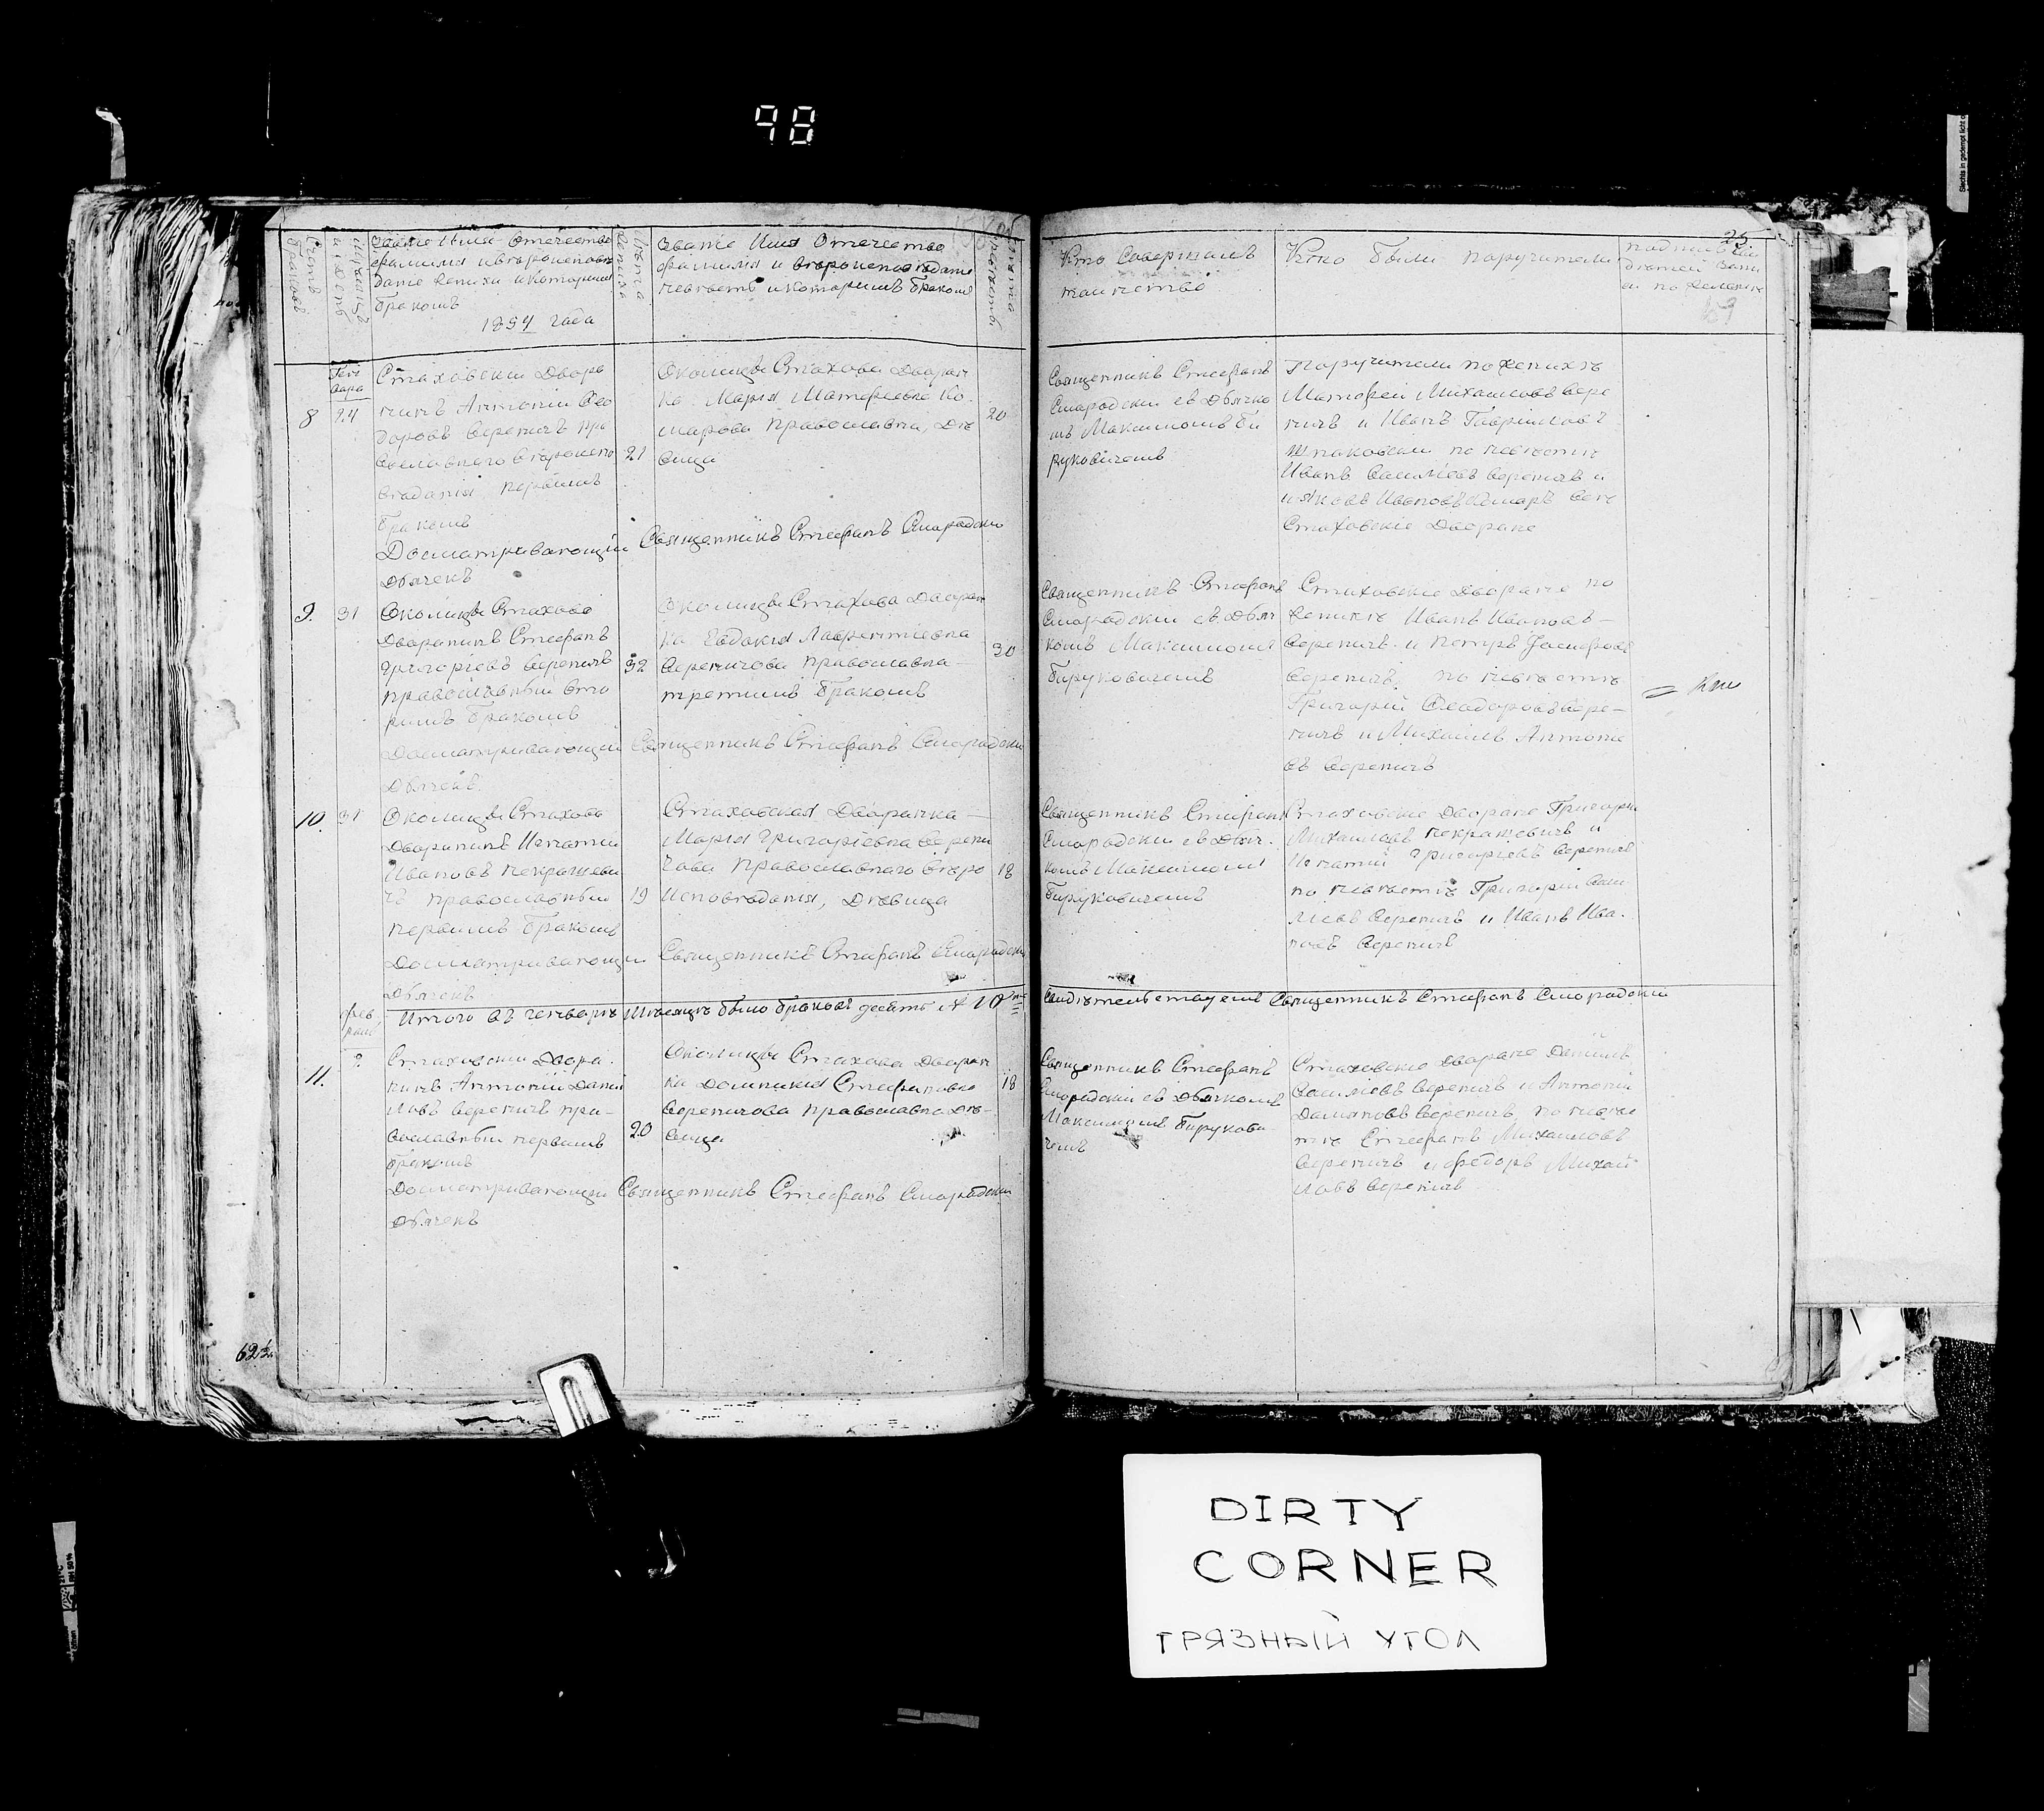 98
Счетъ браковъ
Мѣсяцъ и день
Званіе Имя Отечество
фамилія и вѣроисповѣ
даніе Жениха и которымъ
бракомъ
1854 года
Лѣта Жениха
Званіе Имя Отечество
фамилія и вѣроисповѣданіе
невѣсты и которымъ бракомъ
Лѣта невѣсты
Кто Совершалъ
таинство
Кто были поручители
25
Генваря
8
24
Стаховскій Дворя
нинъ Антоній Ѳео
доровъ Вереничъ пра
вославнаго вѣроиспо
вѣданія первымъ
бракомъ
21
Околицы Стахова Дворян
ка Марія Матфеевна Ко
марова православна, Дѣ
вица
20
Священникъ Стефанъ
Смородскій съ Дьячко
мъ Максимомъ Би
руковичемъ
Поручители по женихѣ
Матфей Михаиловъ Вере
ничъ и Иванъ Гавриловъ
Шпаковскій по невѣстѣ
Иванъ Василіевъ Вереничъ и
Яковъ Ивановъ Комаръ всѣ
Стаховскіе Дворяне
Досматривающій Священникъ Стефанъ Смородскій
Дьячекъ
9.
31
Околицы Стахова
Дворянинъ Стефанъ
Григоріевъ Вереничъ
православный вто
рымъ бракомъ
32
Околицы Стахова Дворян
ка Евдокія Лаврентіевна
Вереничова православна
третимъ бракомъ
30
Священникъ Стефанъ
Смородскій съ Дьяч
комъ Максимомъ
Бируковичемъ
Стаховскіе Дворяне по
женихѣ Иванъ Ивановъ
Вереничъ и Петръ Іосифовъ
Вереничъ, по невѣстѣ
Григорій Ѳеодоровъ Вере-
ничъ и Михаилъ Антоніе
въ Вереничъ
Досматривающій Священникъ Стефанъ Смородскій
Дьячекъ
10.
31
Околицы Стахова
Дворянинъ Игнатій
Ивановъ Некрашеви
чъ православный
первымъ бракомъ
19
Стаховская Дворянка
Марія Григоріевна Верени
чова Православнаго вѣро
Исповѣданія, Дѣвица
18
Священникъ Стефанъ
Смородскій съ Дьяч.
комъ Максимомъ
Бируковичемъ
Стаховскіе Дворяне Григорій
Михаиловъ Некрашевичъ и
Игнатій Григоріевъ Вереничъ
по невѣстѣ Григорій Васи
ліевъ Вереничъ и Иванъ Ива.
новъ Вереничъ
Досматривающій Священникъ Стефанъ Смородскій
Дьячекъ
Итого въ Генварѣ Мѣсяцѣ было браковъ десять №10
Свидѣтельствуетъ Священникъ Стефанъ Смородскій
11.
Стаховскій Дворя.
нинъ Антоній Дани
ловъ Вереничъ пра-
вославный первымъ
бракомъ
20
Околицы Стахова Дворян
ка Домникія Стефановна
Вереничова православна Дѣ-
вица
18
Священникъ Стефанъ
Смородскій съ Дьячкомъ
Максимомъ Бирукови
чемъ
Стаховскіе Дворяне Даніилъ
Василіевъ Вереничъ и Антоній
Даміановъ Вереничъ, по невѣс
тѣ Стефанъ Михаиловъ
Вереничъ и Федоръ Михай
ловъ Вереничъ
Досматривающій Священникъ Стефанъ Смородскій
Дьячекъ
DIRTY
CORNER
ГРЯЗНЫЙ УГОЛ